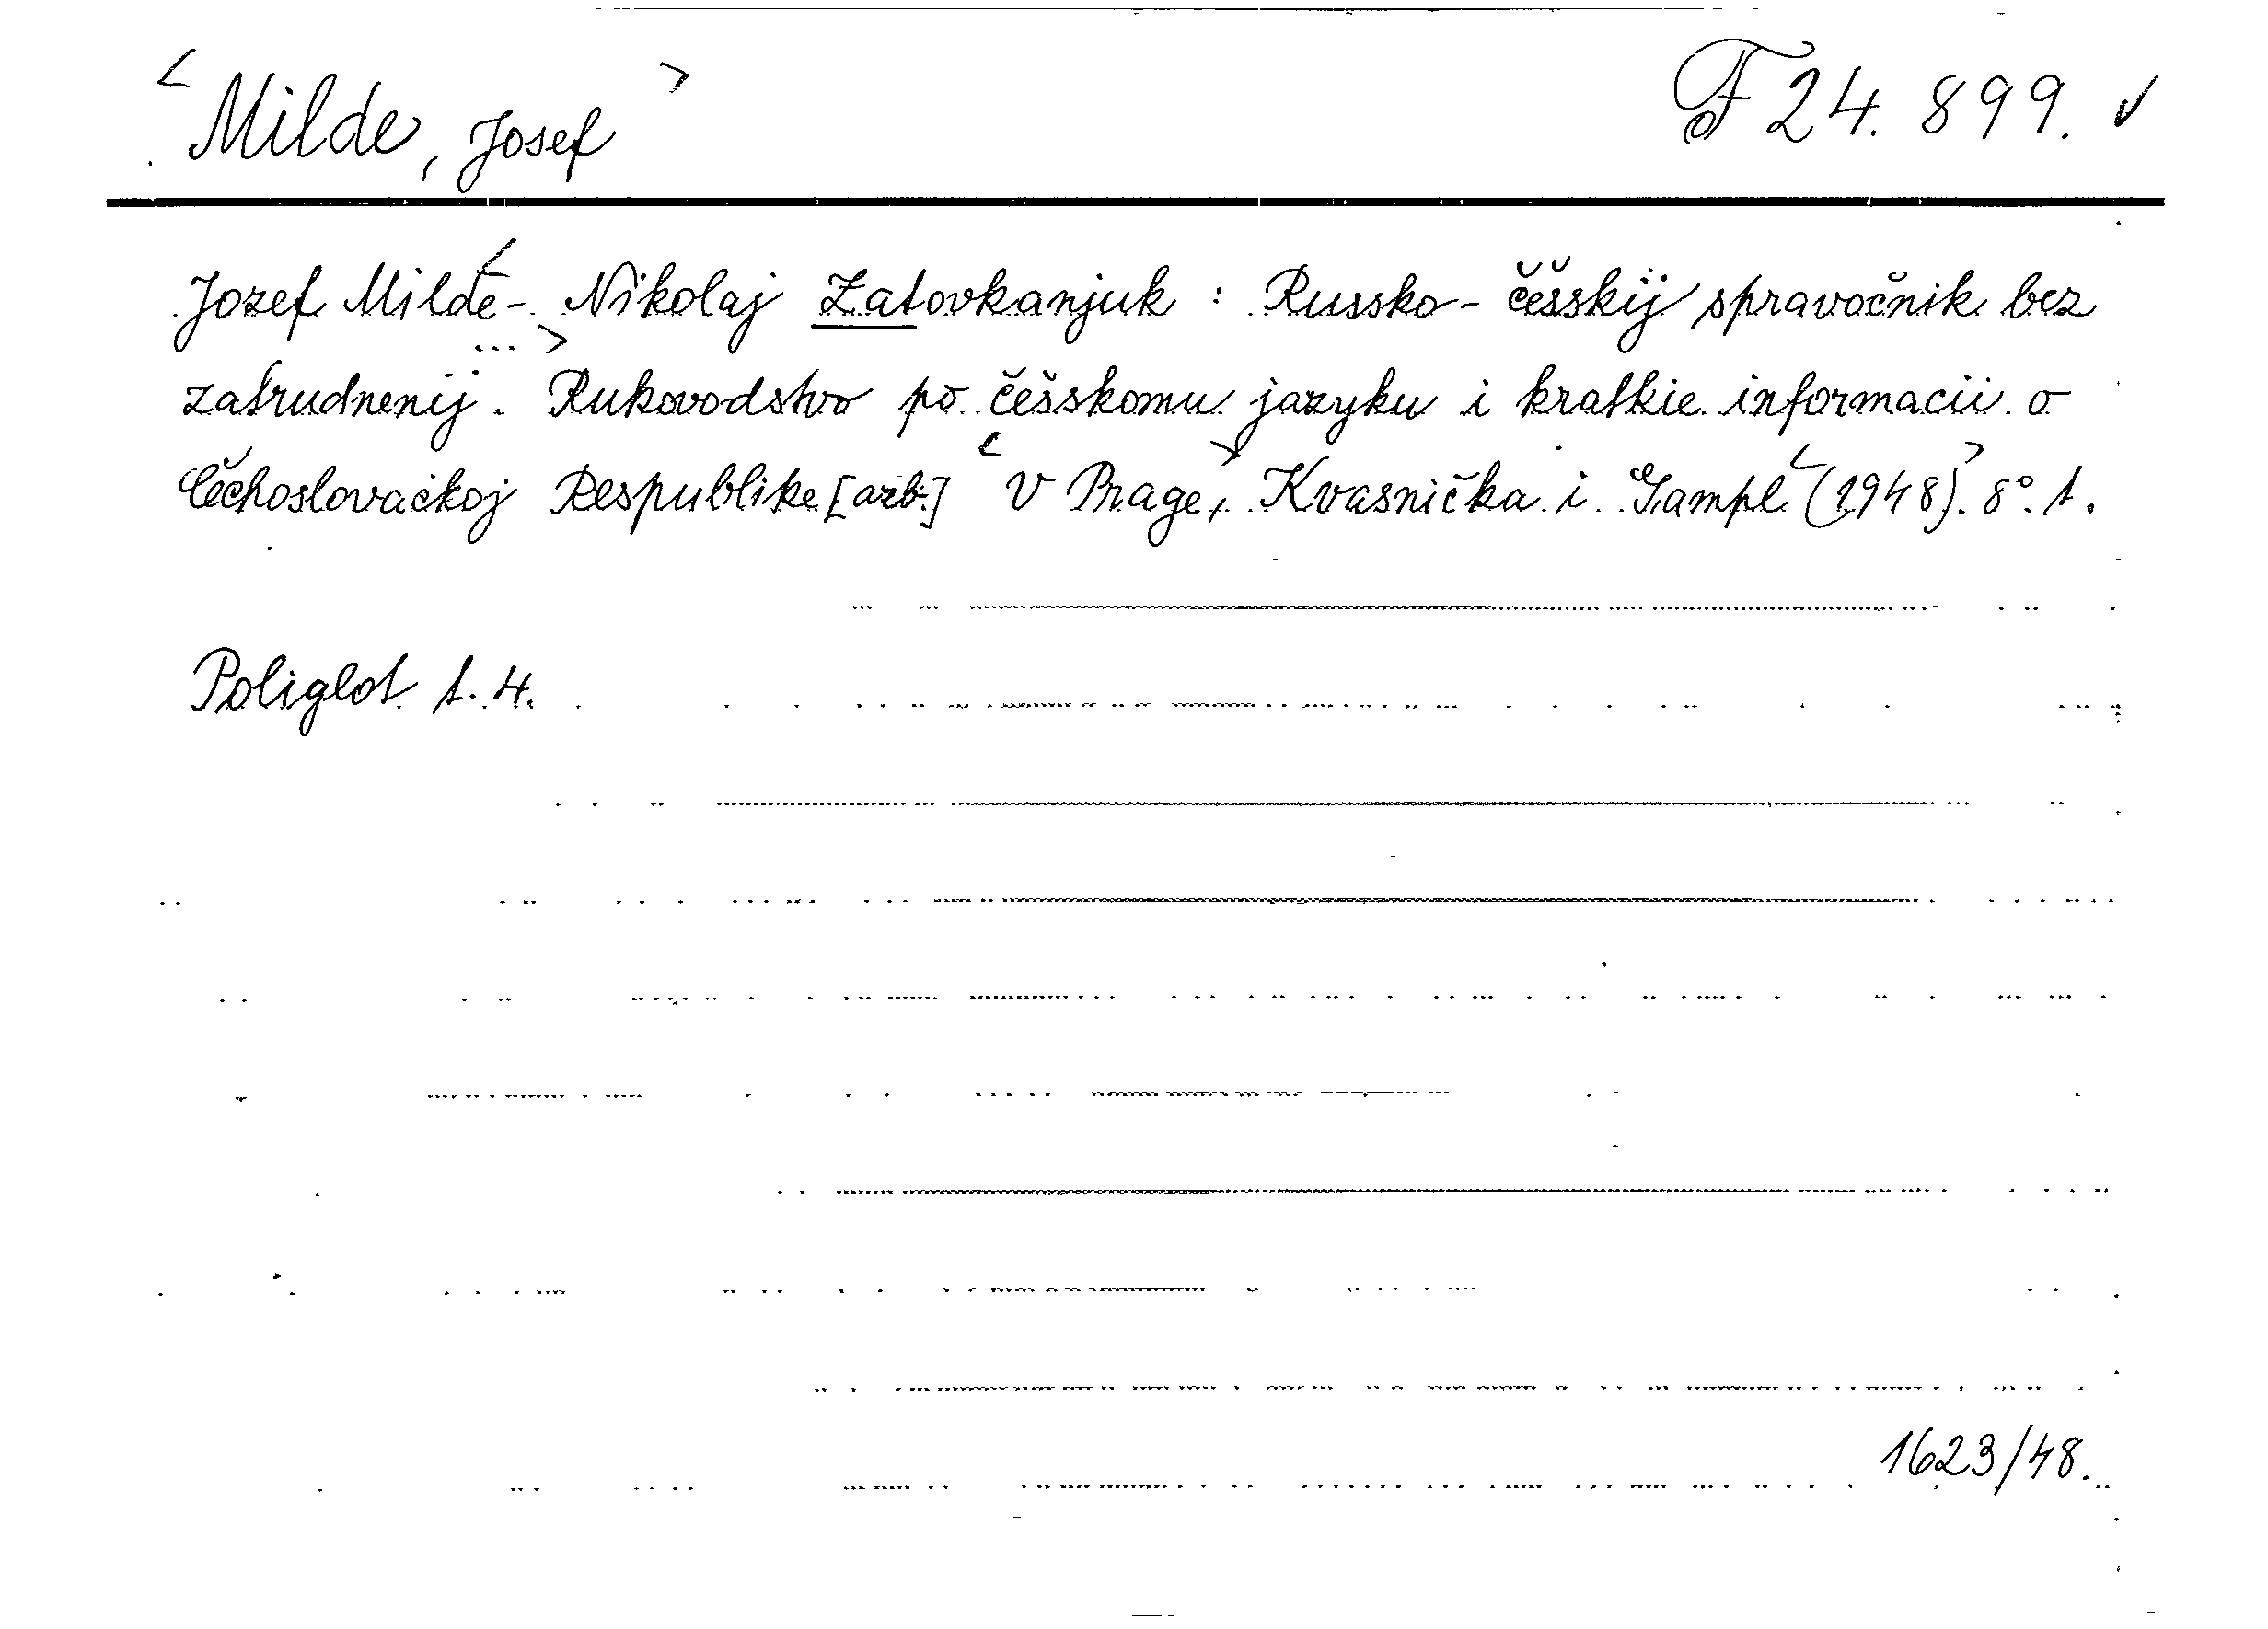 < Milde, Josef > F 24. 899. ✓
Jozef Milde - < Nikolaj Zatovkanjuk : Russko-češskij spravočnik bez
zatrudnenij. ... > Rukovodstvo po češskomu jazyku i kratkie informacii o
Čechoslovackoj Respublike [azb.] < V Prage, > Kvasnička i Gampl < (1948). > 8° 1.
Poliglot 1. 4.
1623/48.